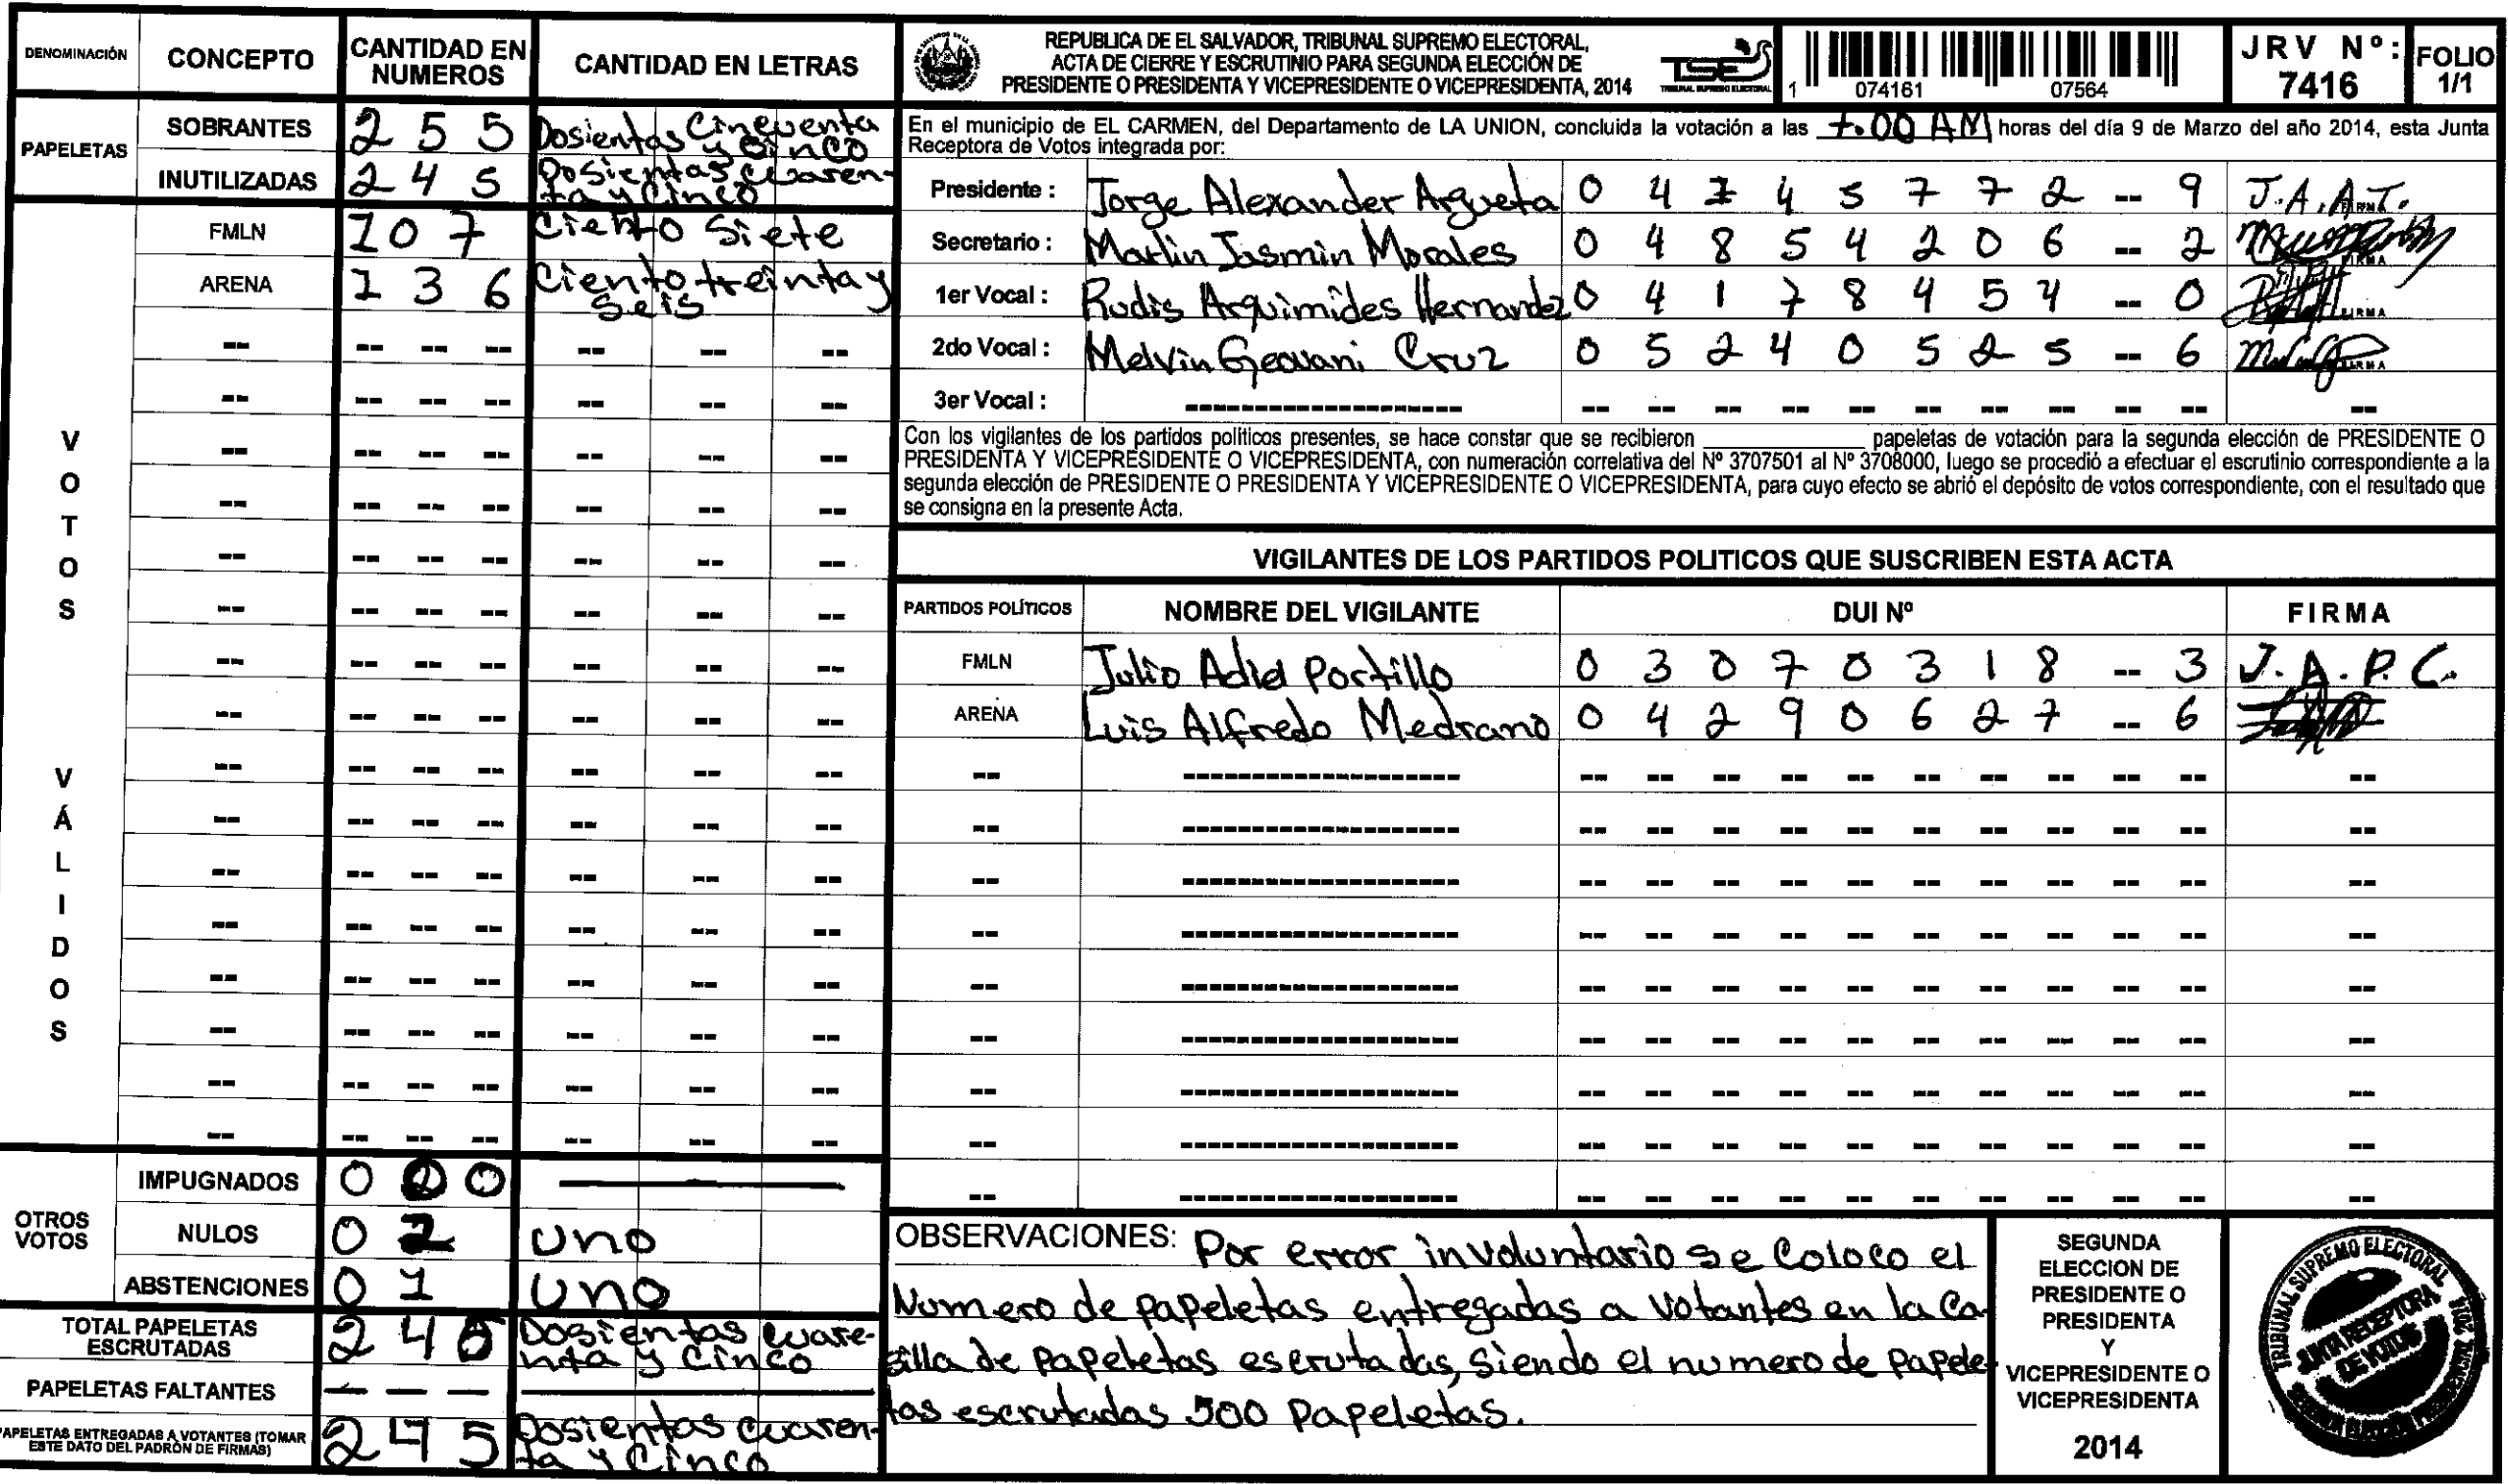 DENOMINACIÓN CONCEPTO CANTIDAD EN NUMEROS CANTIDAD EN LETRAS
PAPELETAS
SOBRANTES 2 5 5 Dosientas Cincuenta y Cinco
INUTILIZADAS 2 4 5 Dosientas cuarenta y Cinco
VOTOS VÁLIDOS
FMLN 1 0 7 Ciento Siete
ARENA 1 3 6 Ciento treinta y Seis
OTROS VOTOS
IMPUGNADOS 0 0 0
NULOS 0 1 uno
ABSTENCIONES 0 1 uno
TOTAL PAPELETAS ESCRUTADAS 2 4 5 Dosientas cuarenta y Cinco
PAPELETAS FALTANTES — — —
PAPELETAS ENTREGADAS A VOTANTES (TOMAR ESTE DATO DEL PADRÓN DE FIRMAS) 2 4 5 Dosientas cuarenta y Cinco
REPUBLICA DE EL SALVADOR, TRIBUNAL SUPREMO ELECTORAL,
ACTA DE CIERRE Y ESCRUTINIO PARA SEGUNDA ELECCIÓN DE
PRESIDENTE O PRESIDENTA Y VICEPRESIDENTE O VICEPRESIDENTA, 2014
TSE
TRIBUNAL SUPREMO ELECTORAL
1 074161 07564
JRV Nº: 7416
FOLIO 1/1
En el municipio de EL CARMEN, del Departamento de LA UNION, concluida la votación a las 7:00 AM horas del día 9 de Marzo del año 2014, esta Junta
Receptora de Votos integrada por:
Presidente : Jorge Alexander Argueta 0 4 1 4 5 7 7 2 -- 9 J.A.A.T. FIRMA
Secretario : Marlin Jasmin Morales 0 4 8 5 4 2 0 6 -- 2 FIRMA
1er Vocal : Rudis Arquimides Hernandez 0 4 1 7 8 4 5 4 -- 0 FIRMA
2do Vocal : Melvin Geovani Cruz 0 5 2 4 0 5 2 5 -- 6 FIRMA
3er Vocal :
Con los vigilantes de los partidos políticos presentes, se hace constar que se recibieron ____________ papeletas de votación para la segunda elección de PRESIDENTE O
PRESIDENTA Y VICEPRESIDENTE O VICEPRESIDENTA, con numeración correlativa del Nº 3707501 al Nº 3708000, luego se procedió a efectuar el escrutinio correspondiente a la
segunda elección de PRESIDENTE O PRESIDENTA Y VICEPRESIDENTE O VICEPRESIDENTA, para cuyo efecto se abrió el depósito de votos correspondiente, con el resultado que
se consigna en la presente Acta.
VIGILANTES DE LOS PARTIDOS POLITICOS QUE SUSCRIBEN ESTA ACTA
PARTIDOS POLÍTICOS NOMBRE DEL VIGILANTE DUI Nº FIRMA
FMLN Julio Adiel Portillo 0 3 0 7 0 3 1 8 -- 3 J.A.P.C.
ARENA Luis Alfredo Medrano 0 4 2 9 0 6 2 7 -- 6
OBSERVACIONES: Por error involuntario se coloco el
Numero de papeletas entregadas a votantes en la Ca-
silla de papeletas escrutadas, siendo el numero de papele
tas escrutadas 500 papeletas.
SEGUNDA
ELECCION DE
PRESIDENTE O
PRESIDENTA
Y
VICEPRESIDENTE O
VICEPRESIDENTA
2014
TRIBUNAL SUPREMO ELECTORAL
JUNTA RECEPTORA
DE VOTOS